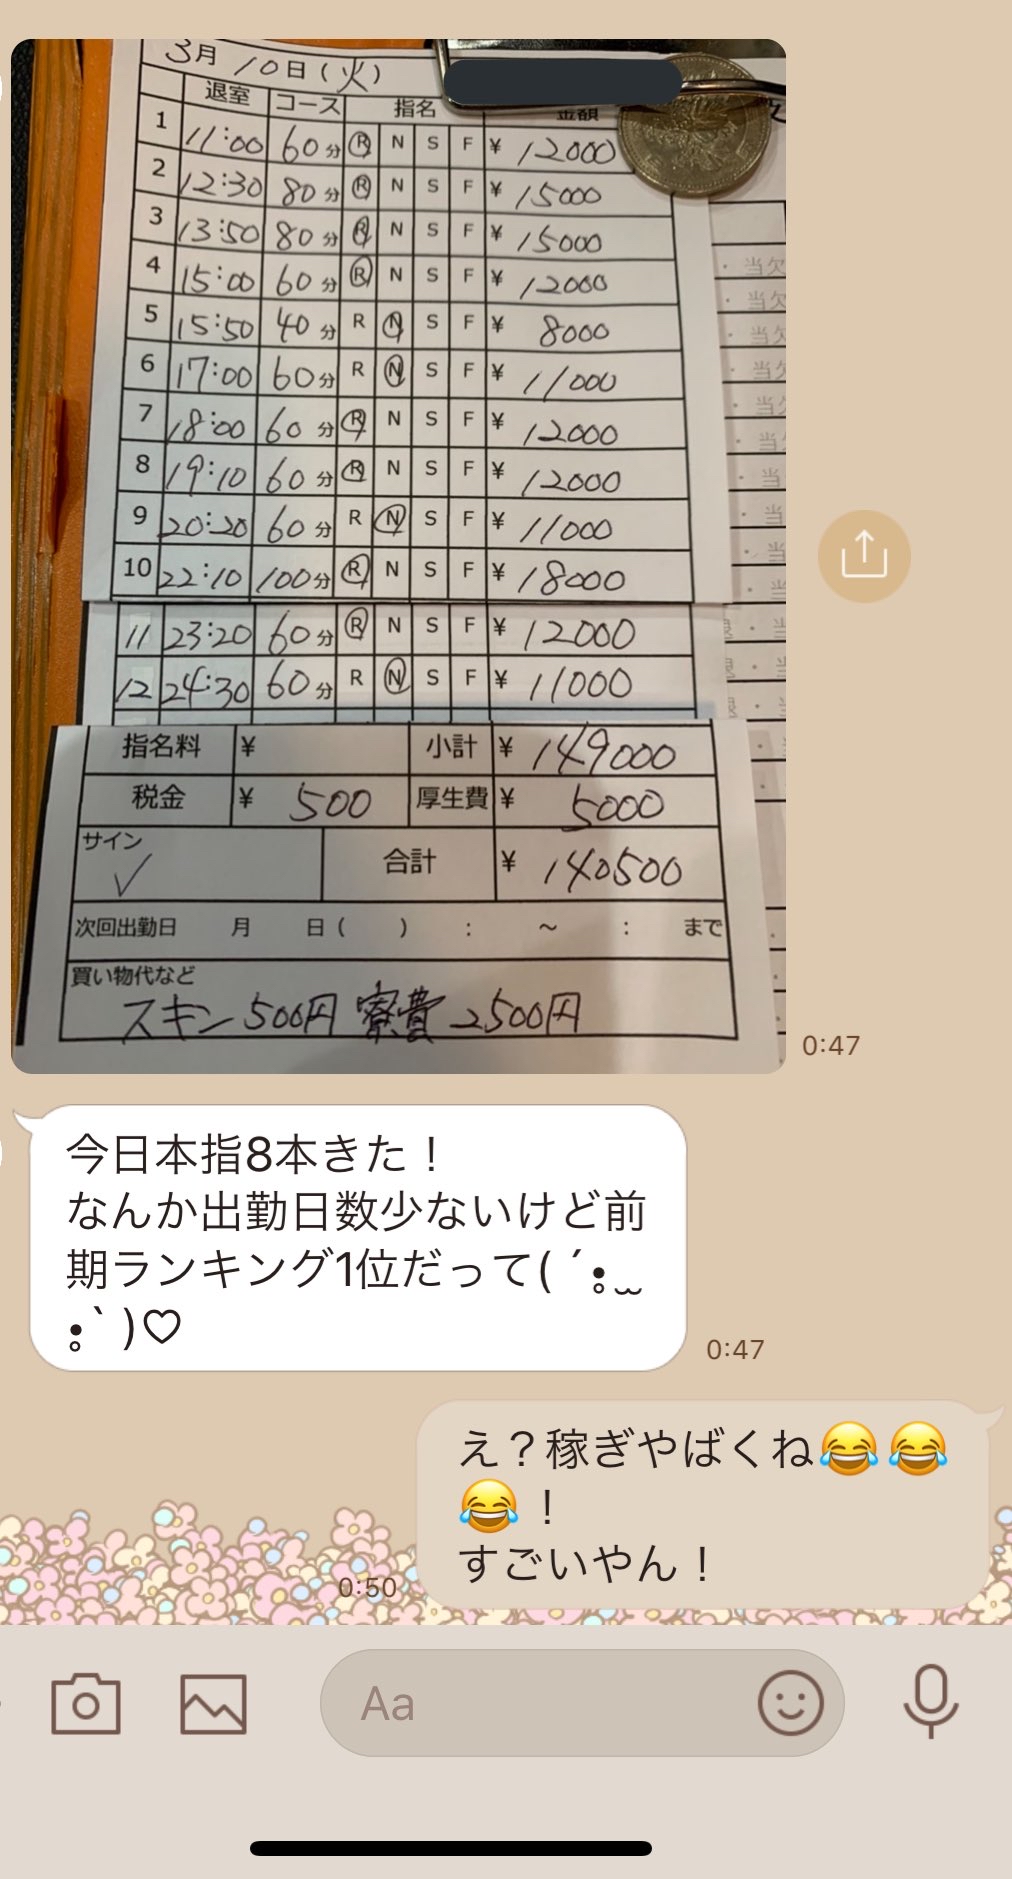 3月10日(火)
退室 コース 指名 金額
1 11:00 60分 R N S F ¥ 12000
2 12:30 80分 R N S F ¥ 15000
3 13:50 80分 R N S F ¥ 15000
4 15:00 60分 R N S F ¥ 12000
5 15:50 40分 R N S F ¥ 8000
6 17:00 60分 R N S F ¥ 11000
7 18:00 60分 R N S F ¥ 12000
8 19:10 60分 R N S F ¥ 12000
9 20:20 60分 R N S F ¥ 11000
10 22:10 100分 R N S F ¥ 18000
11 23:20 60分 R N S F ¥ 12000
12 24:30 60分 R N S F ¥ 11000
指名料 ¥ 小計 ¥ 149000
税金 ¥ 500 厚生費 ¥ 5000
サイン
合計 ¥ 140500
次回出勤日 月 日( ) : ～ : まで
買い物代など
スキン500円 寮費2500円
0:47
今日本指8本きた！
なんか出勤日数少ないけど前
期ランキング1位だって( ´•̥ ̫
•̥` )♡
0:47
え？稼ぎやばくね😂😂
😂！
すごいやん！
0:50
Aa